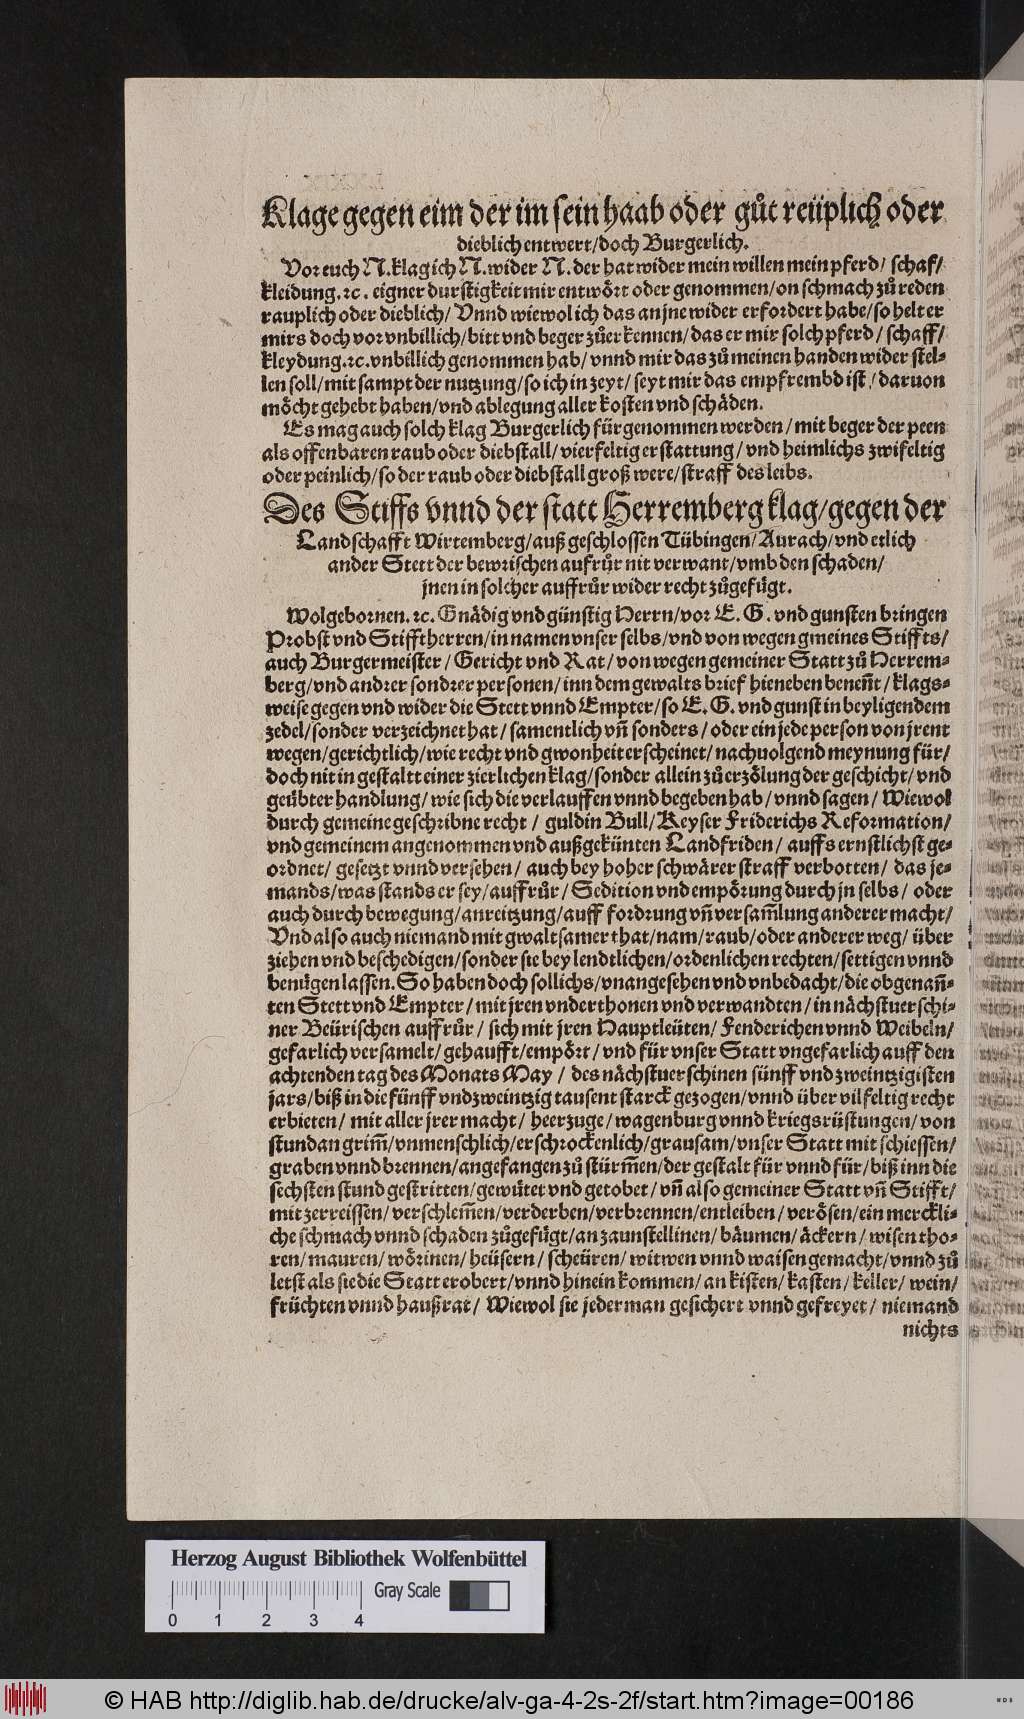 Klage gegen eim der im sein haab oder gůt reüplich oder
dieblich entwert/doch Burgerlich.
Vor euch N. klag ich N. wider N. der hat wider mein willen mein pferd/ schaf/
kleidung. ꝛc. eigner durstigkeit mir entwört oder genommen/on schmach zů reden
rauplich oder dieblich/ Vnnd wiewol ich das an jne wider erfordert habe/so helt er
mirs doch vor vnbillich/bitt vnd beger zůerkennen/das er mir solch pferd/ schaff/
kleydung.ꝛc. vnbillich genommen hab/ vnnd mir das zů meinen handen wider stel-
len soll/mit sampt der nutzung/so ich in zeyt/ seyt mir das empfrembd ist / daruon
möcht gehebt haben/vnd ablegung aller kosten vnd schäden.
Es mag auch solch klag Burgerlich fürgenommen werden/mit beger der peen
als offenbaren raub oder diebstall/vierfeltig erstattung/ vnd heimlichs zwifeltig
oder peinlich/so der raub oder diebstall groß were/straff des leibs.
Des Stiffs vnnd der statt Herremberg klag/gegen der
Landschafft Wirtemberg/auß geschlossen Tübingen/Aurach/vnd etlich
ander Stett der bewrischen aufrůr nit verwant/vmb den schaden/
jnen in solcher auffrůr wider recht zůgefügt.
Wolgebornen. ꝛc. Gnädig vnd günstig Herrn/vor E. G. vnd gunsten bringen
Probst vnd Stifftherren/in namen vnser selbs/vnd von wegen gmeines Stiffts/
auch Burgermeister / Gericht vnd Rat/von wegen gemeiner Statt zů Herrem-
berg/vnd andrer sondrer personen/ inn dem gewalts brief hieneben beneñt/klags-
weise gegen vnd wider die Stett vnnd Empter/so E. G. vnd gunst in beyligendem
zedel/sonder verzeichnet hat/ samentlich vñ sonders/ oder ein jede person von jrent
wegen/gerichtlich/wie recht vnd gwonheit erscheinet/nachuolgend meynung für/
doch nit in gestaltt einer zierlichen klag/sonder allein zůerzölung der geschicht/vnd
geübter handlung/ wie sich die verlauffen vnnd begeben hab/vnnd sagen/ Wiewol
durch gemeine geschribne recht / guldin Bull/Keyser Friderichs Reformation/
vnd gemeinem angenommen vnd außgekünten Landfriden/ auffs ernstlichst ge-
ordnet/ gesetzt vnnd versehen/ auch bey hoher schwärer straff verbotten/ das je-
mands/was stands er sey/auffrůr/ Sedition vnd empörung durch jn selbs/ oder
auch durch bewegung/anreitzung/auff fordrung vñ versam̃lung anderer macht/
Vnd also auch niemand mit gwaltsamer that/nam/raub/oder anderer weg/ über
ziehen vnd beschedigen/sonder sie bey lendtlichen/ordenlichen rechten/settigen vnnd
benügen lassen. So haben doch sollichs/vnangesehen vnd vnbedacht/die obgenañ-
ten Stett vnd Empter/mit jren vnderthonen vnd verwandten/in nächstuerschi-
ner Beürischen auffrůr/ sich mit jren Hauptleüten/ Fenderichen vnnd Weibeln/
gefarlich versamelt/gehaufft/empört/vnd für vnser Statt vngefarlich auff den
achtenden tag des Monats May / des nächstuerschinen fünff vnd zweintzigisten
jars/biß in die fünff vnd zweintzig tausent starck gezogen/vnnd über vilfeltig recht
erbieten/ mit aller jrer macht/ heerzuge/wagenburg vnnd kriegsrüstungen/von
stundan grim̃/vnmenschlich/erschrockenlich/grausam/vnser Statt mit schiessen/
graben vnnd brennen/angefangen zů stürm̃en/der gestalt für vnnd für/biß inn die
sechsten stund gestritten/gewütet vnd getobet/ vñ also gemeiner Statt vñ Stifft/
mit zerreissen/ verschlem̃en/verderben/verbrennen/entleiben/ verösen/ein merckli-
che schmach vnnd schaden zůgefügt/an zaunstellinen/ bäumen/äckern/ wisen tho-
ren/mauren/wörinen/heüsern/ scheüren/ witwen vnnd waisen gemacht/vnnd zů
letst als sie die Statt erobert/vnnd hinein kommen/an kisten/kasten/keller/ wein/
früchten vnnd haußrat/ Wiewol sie jederman gesichert vnnd gefreyet/ niemand
nichts
Herzog August Bibliothek Wolfenbüttel
Gray Scale
0 1 2 3 4
© HAB http://diglib.hab.de/drucke/alv-ga-4-2s-2f/start.htm?image=00186